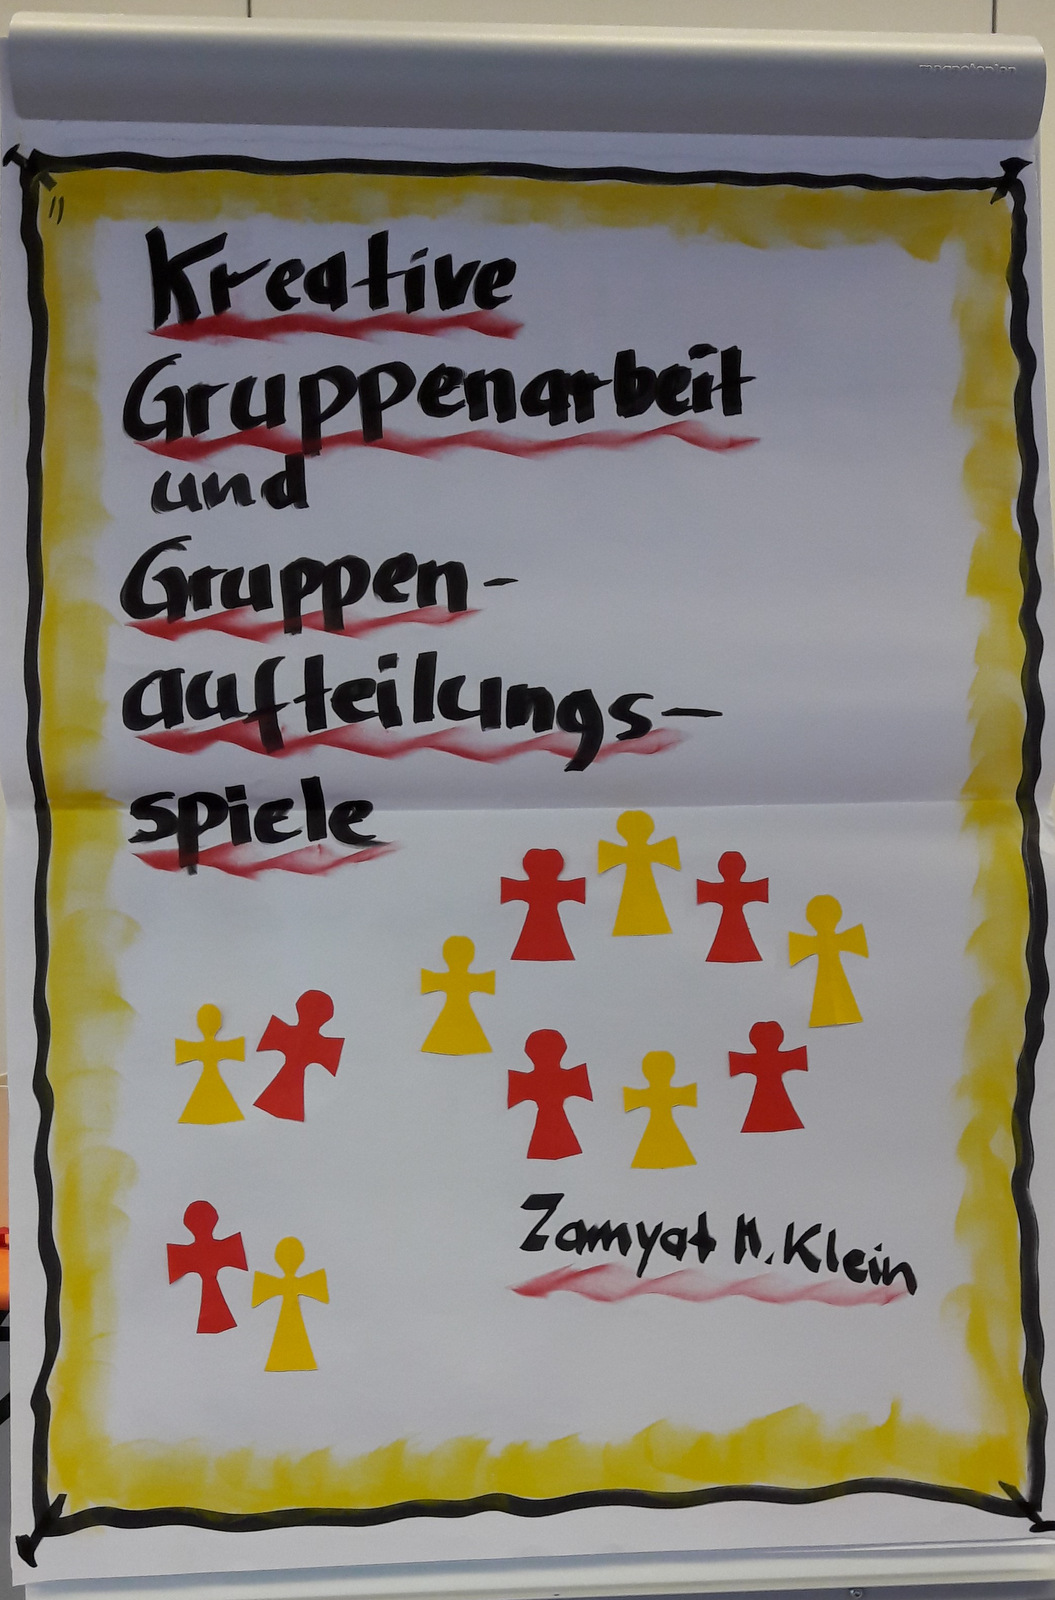 Kreative
Gruppenarbeit
und
Gruppen-
aufteilungs-
spiele
Zamyat M. Klein